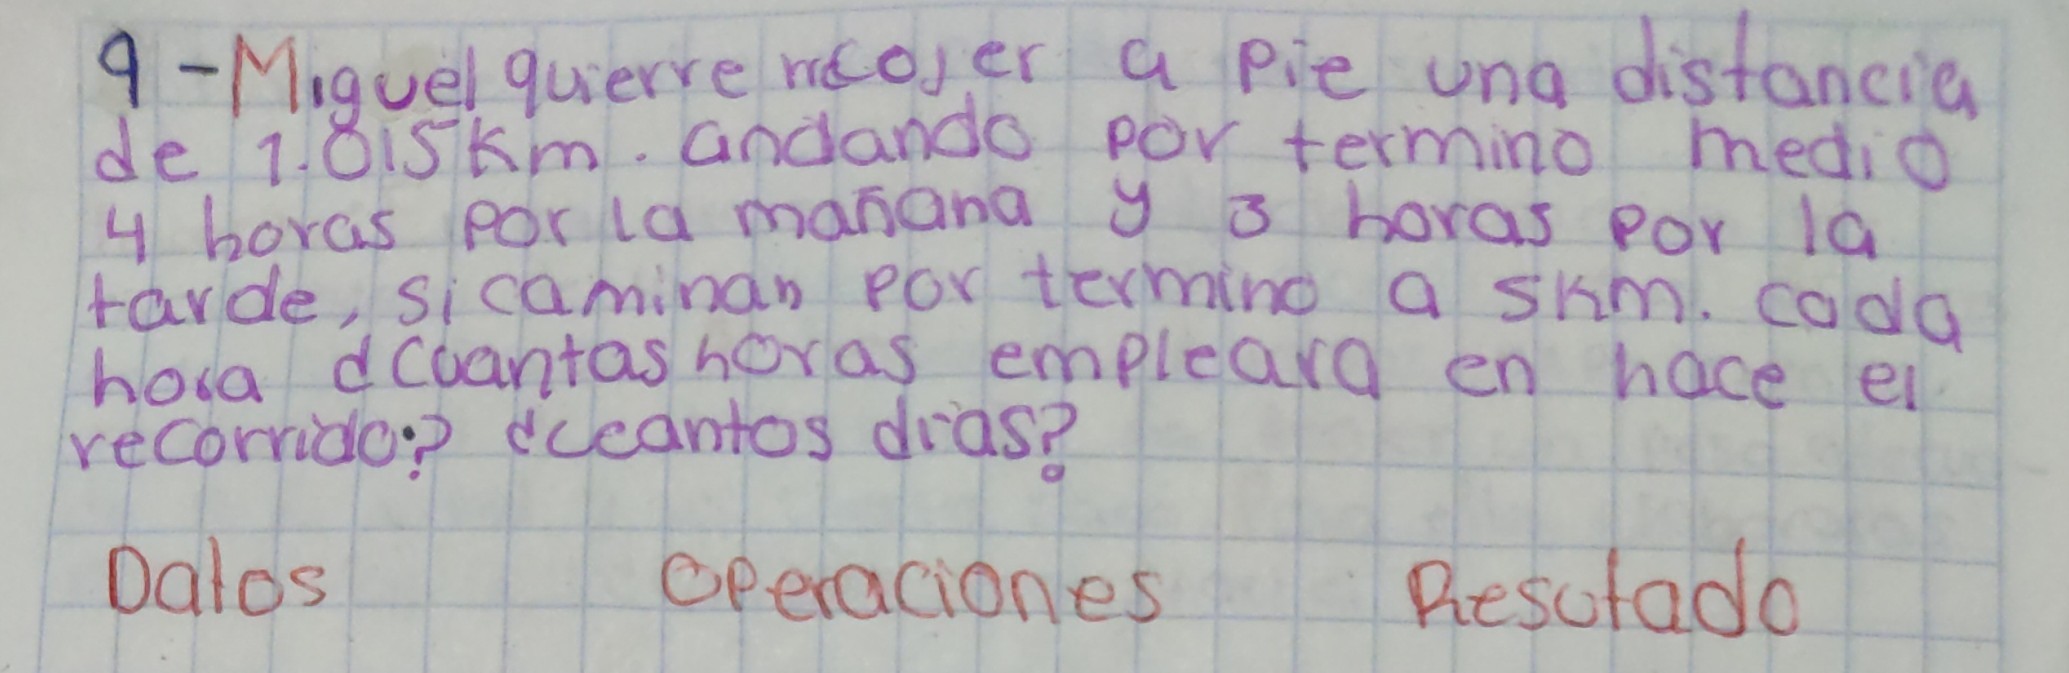 9-Miguel quierre recojer a pie una distancia
de 1.015 Km. andando por termino medio
4 horas por la mañana y 3 horas por la
tarde, si caminan por termino a 5Km. cada
hora ¿Cuantas horas empleara en hace el
recorrido? ¿ceantos dias?
Datos Operaciones Resutado